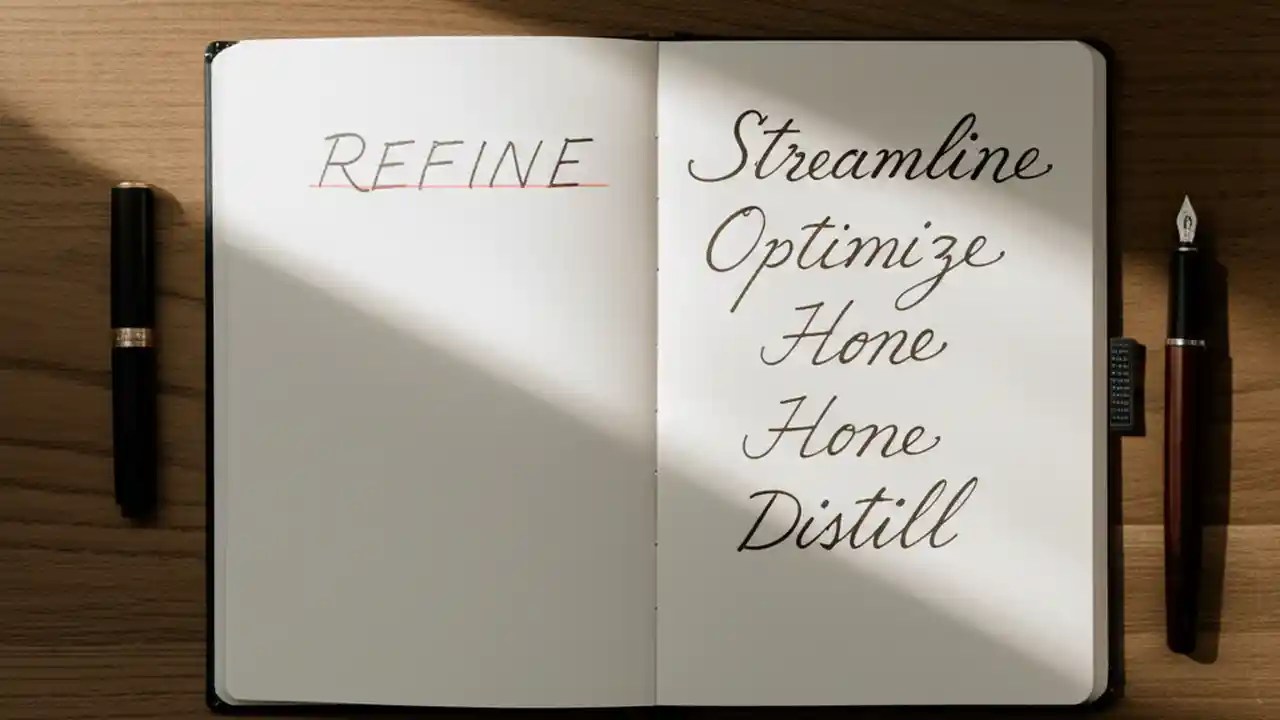 REFINE
Streamline
Optimize
Hone
Hone
Distill